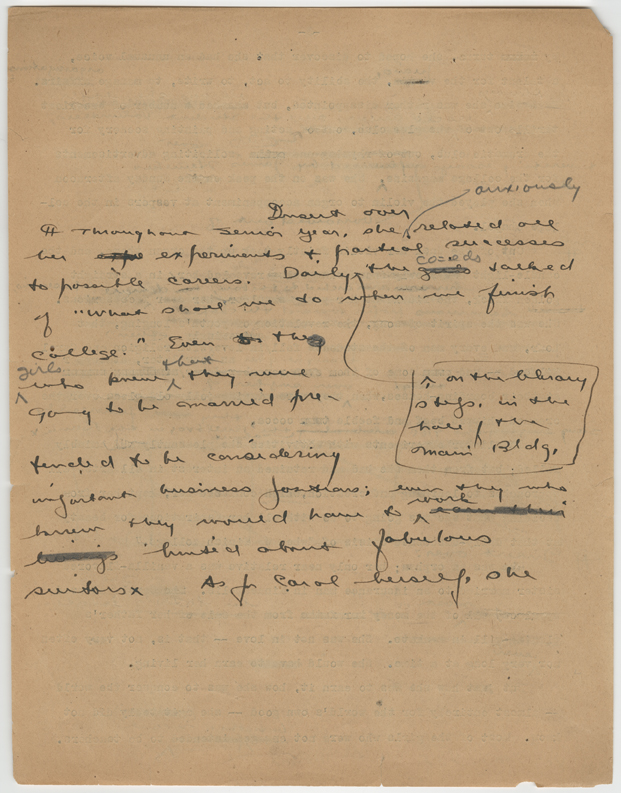 Insert over
anxiously
¶ Throughout Senior year, she related all
her expe experiments & partial successes
coeds
to possible careers. Daily, the girls talked
of "What shall we do when we finish
college." Even to they
girls that
who knew they were
going to be married pre-
on the library
steps, in the
hall of the
Main Bldg,
tended to be considering
important business positions; even they who
work
knew they would have to earn their
livings hinted about fabulous
suitors x As for Carol herself, she